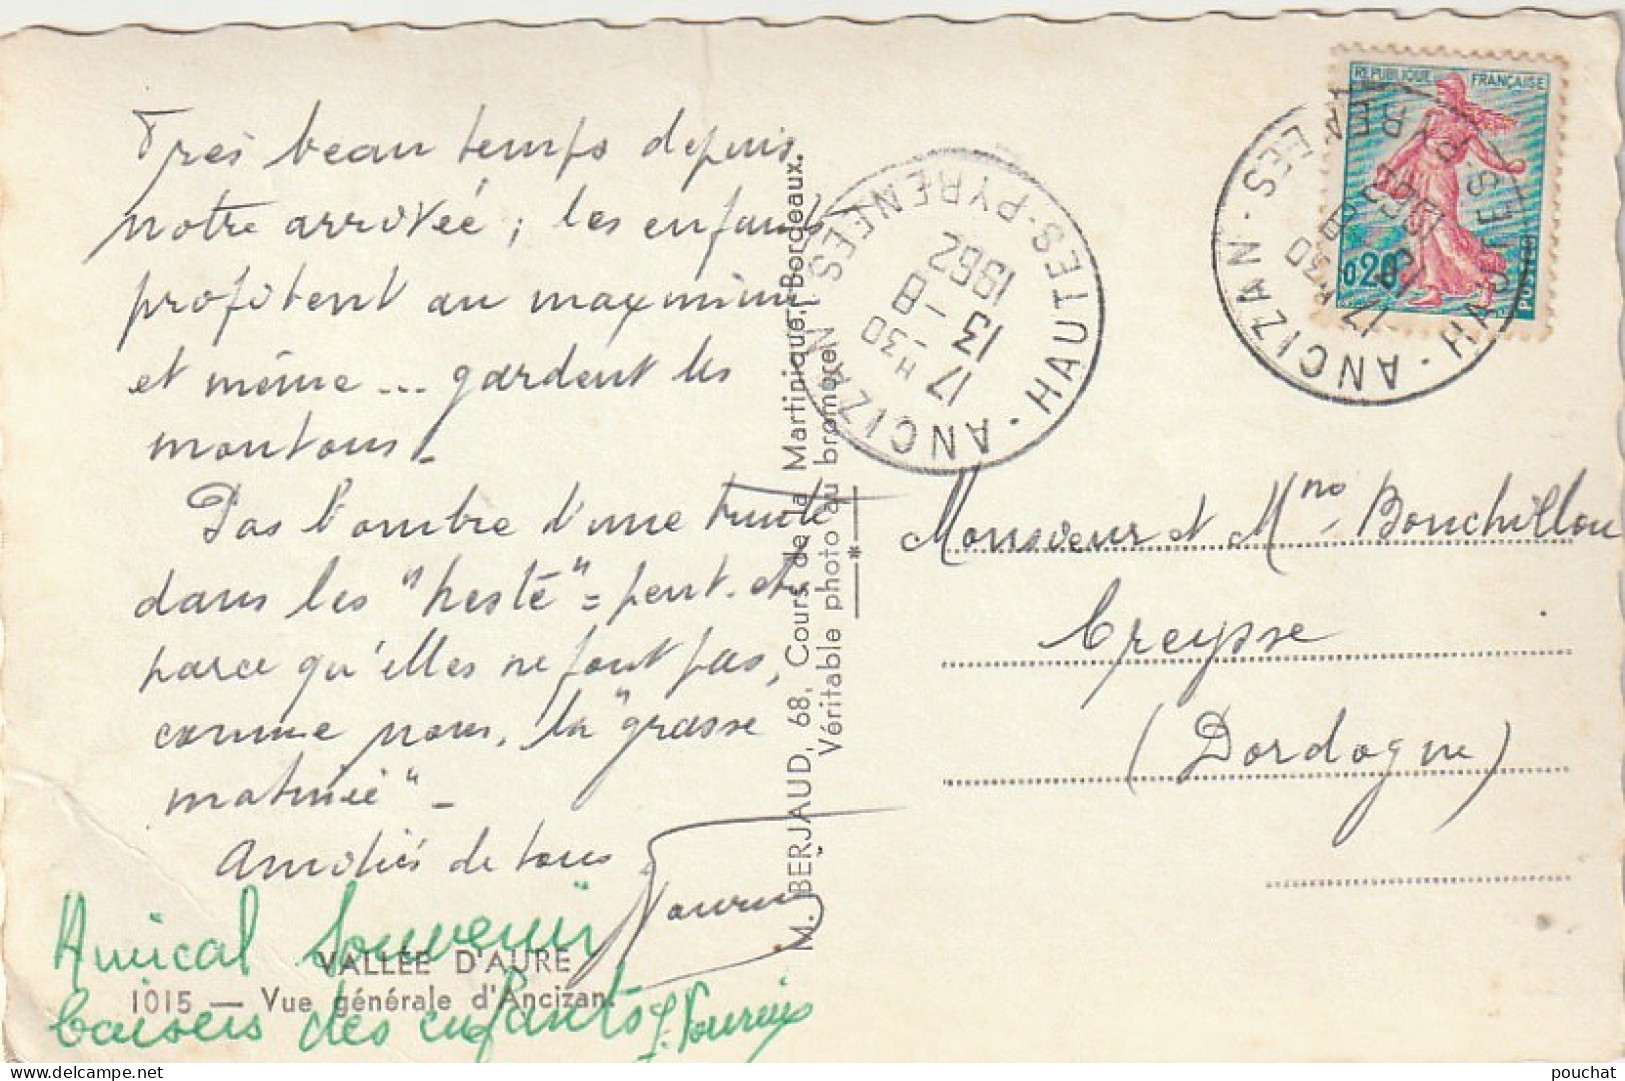 Très beau temps depuis
notre arrivée ; les enfants
profitent au maximum
et même ... gardent les
moutons.
Pas l'ombre d'une truite
dans les "neste" = peut-être
parce qu'elles ne font pas,
comme nous, la "grasse
matinée" -
Amitiés de tous
Amical Souvenir
baisers des enfants
VALLÉE D'AURE
1015 — Vue générale d'Ancizan.
M. BERJAUD, 68, Cours de la Martinique, Bordeaux.
Véritable photo au bromure
ANCIZAN · HAUTES-PYRENEES
17 H 30
13 - 8
1962
REPUBLIQUE FRANÇAISE
0,20
POSTES
ANCIZAN · HAUTES
17 H 30
Monsieur et Mme Bouchillou
Creysse
(Dordogne)
pouchat